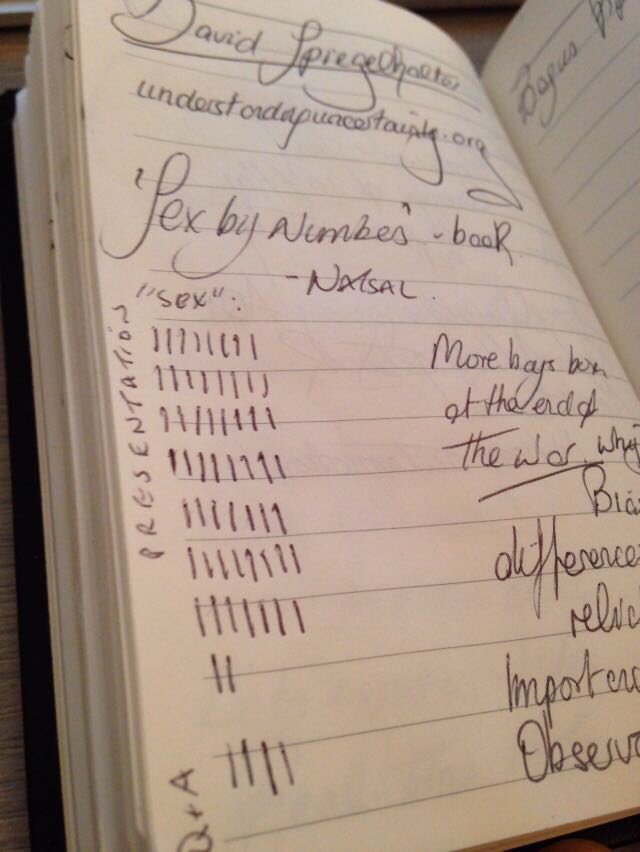 David Spiegelhalter
understandinguncertainty.org
'Sex by Numbers' - book
- NATSAL.
"sex":
PRESENTATION
More boys born
at the end of
the war. why
Bia
difference
relic
Importan
Observ
Q+A